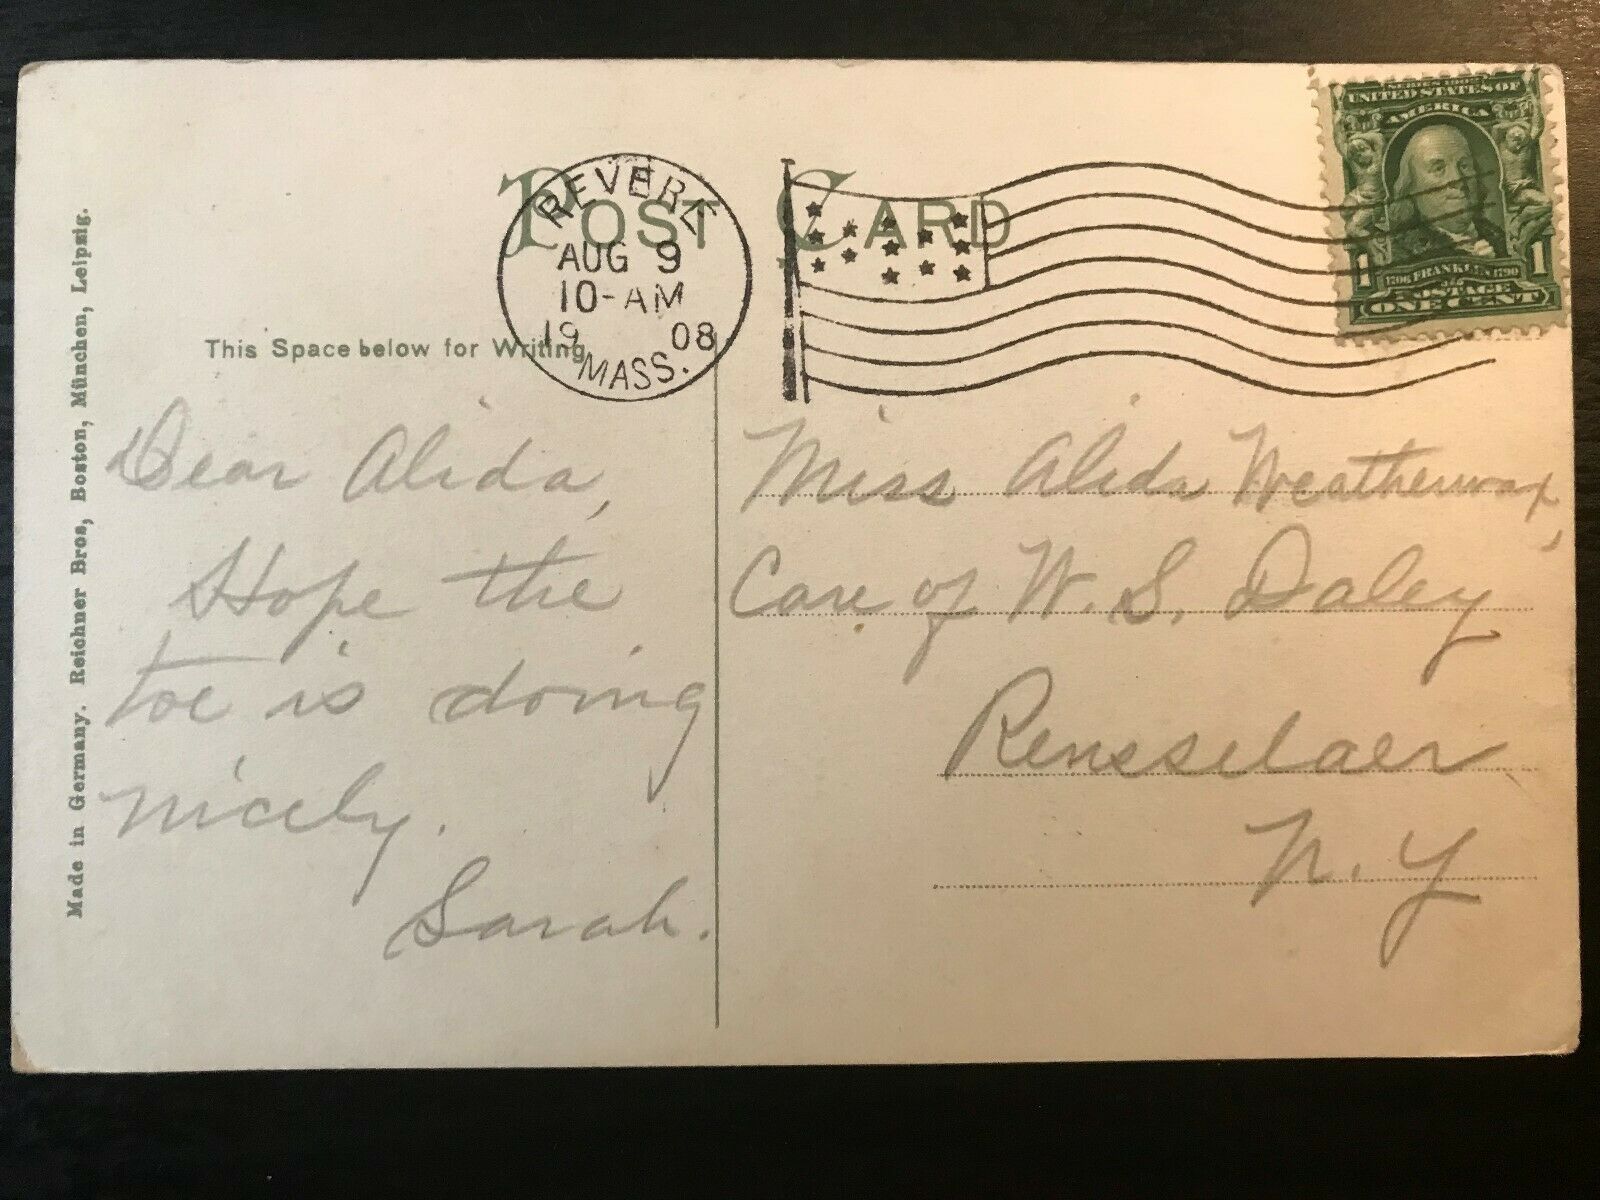 Made in Germany. Reichner Bros, Boston, München, Leipzig.
POST CARD
REVERE
AUG 9
10-AM
19 08
MASS.
SERIES 1902
UNITED STATES OF
AMERICA
1706 FRANKLIN 1790
1 1
POSTAGE
ONE CENT
This Space below for Writing
Dear Alida,
Hope the
toe is doing
nicely.
Sarah.
Miss Alida Weatherwax,
Care of W. S. Daley
Rensselaer
N.Y